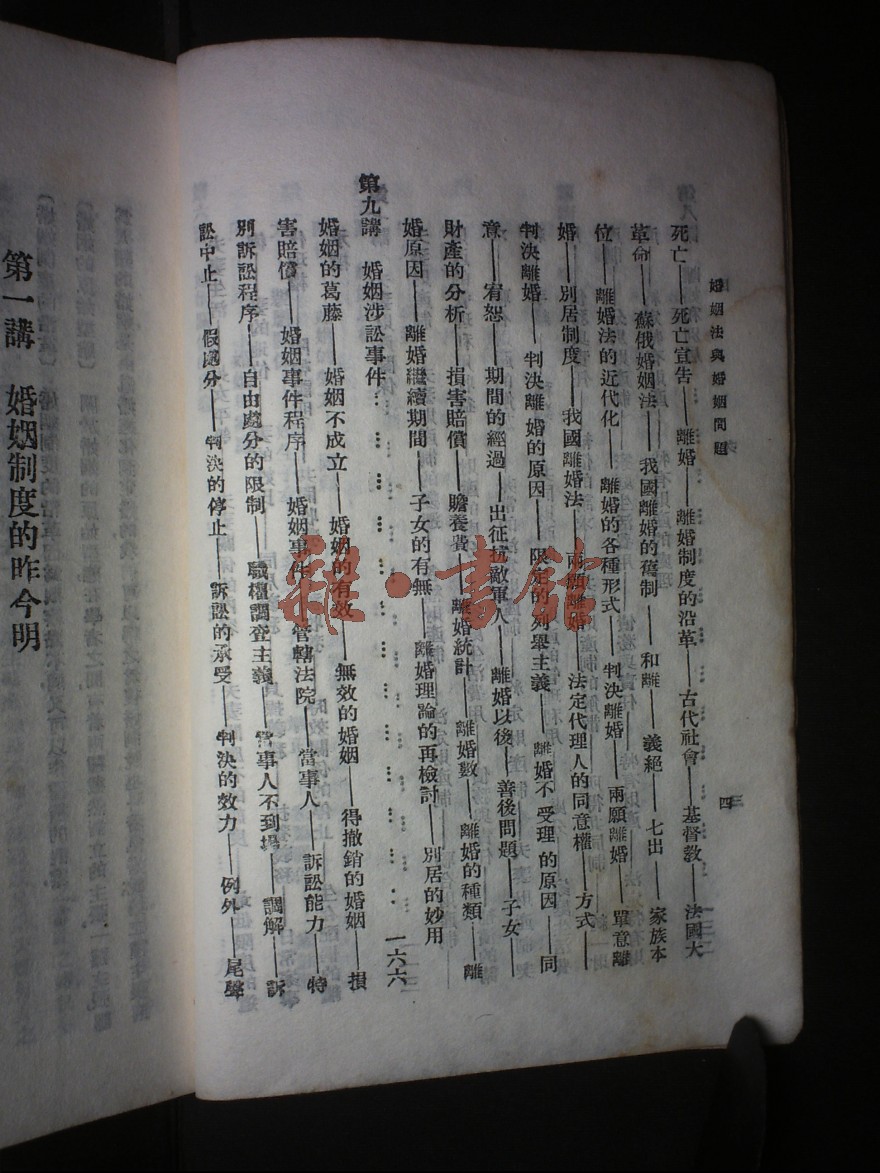 婚姻法與婚姻問題
四
死亡——死亡宣告——離婚——離婚制度的沿革——古代社會——基督敎——法國大
革命——蘇俄婚姻法——我國離婚的舊制——和離——義絕——七出——家族本
位——離婚法的近代化——離婚的各種形式——判決離婚——兩願離婚——單意離
婚——別居制度——我國離婚法——兩願離婚——法定代理人的同意權——方式——
判決離婚——判決離婚的原因——限定的列舉主義——離婚不受理的原因——同
意——宥恕——期間的經過——出征抗敵軍人——離婚以後——善後問題——子女——
財產的分析——損害賠償——贍養費——離婚統計——離婚數——離婚的種類——離
婚原因——離婚繼續期間——子女的有無——離婚理論的再檢討——別居的妙用
第九講 婚姻涉訟事件……………………一六六
婚姻的葛藤——婚姻不成立——婚姻的有效——無效的婚姻——得撤銷的婚姻——損
害賠償——婚姻事件程序——婚姻事件——管轄法院——當事人——訴訟能力——特
別訴訟程序——自由處分的限制——職權調查主義——當事人不到場——調解——訴
訟中止——假處分——判決的停止——訴訟的承受——判決的效力——例外——尾聲
第一講 婚姻制度的昨今明
雜·書館